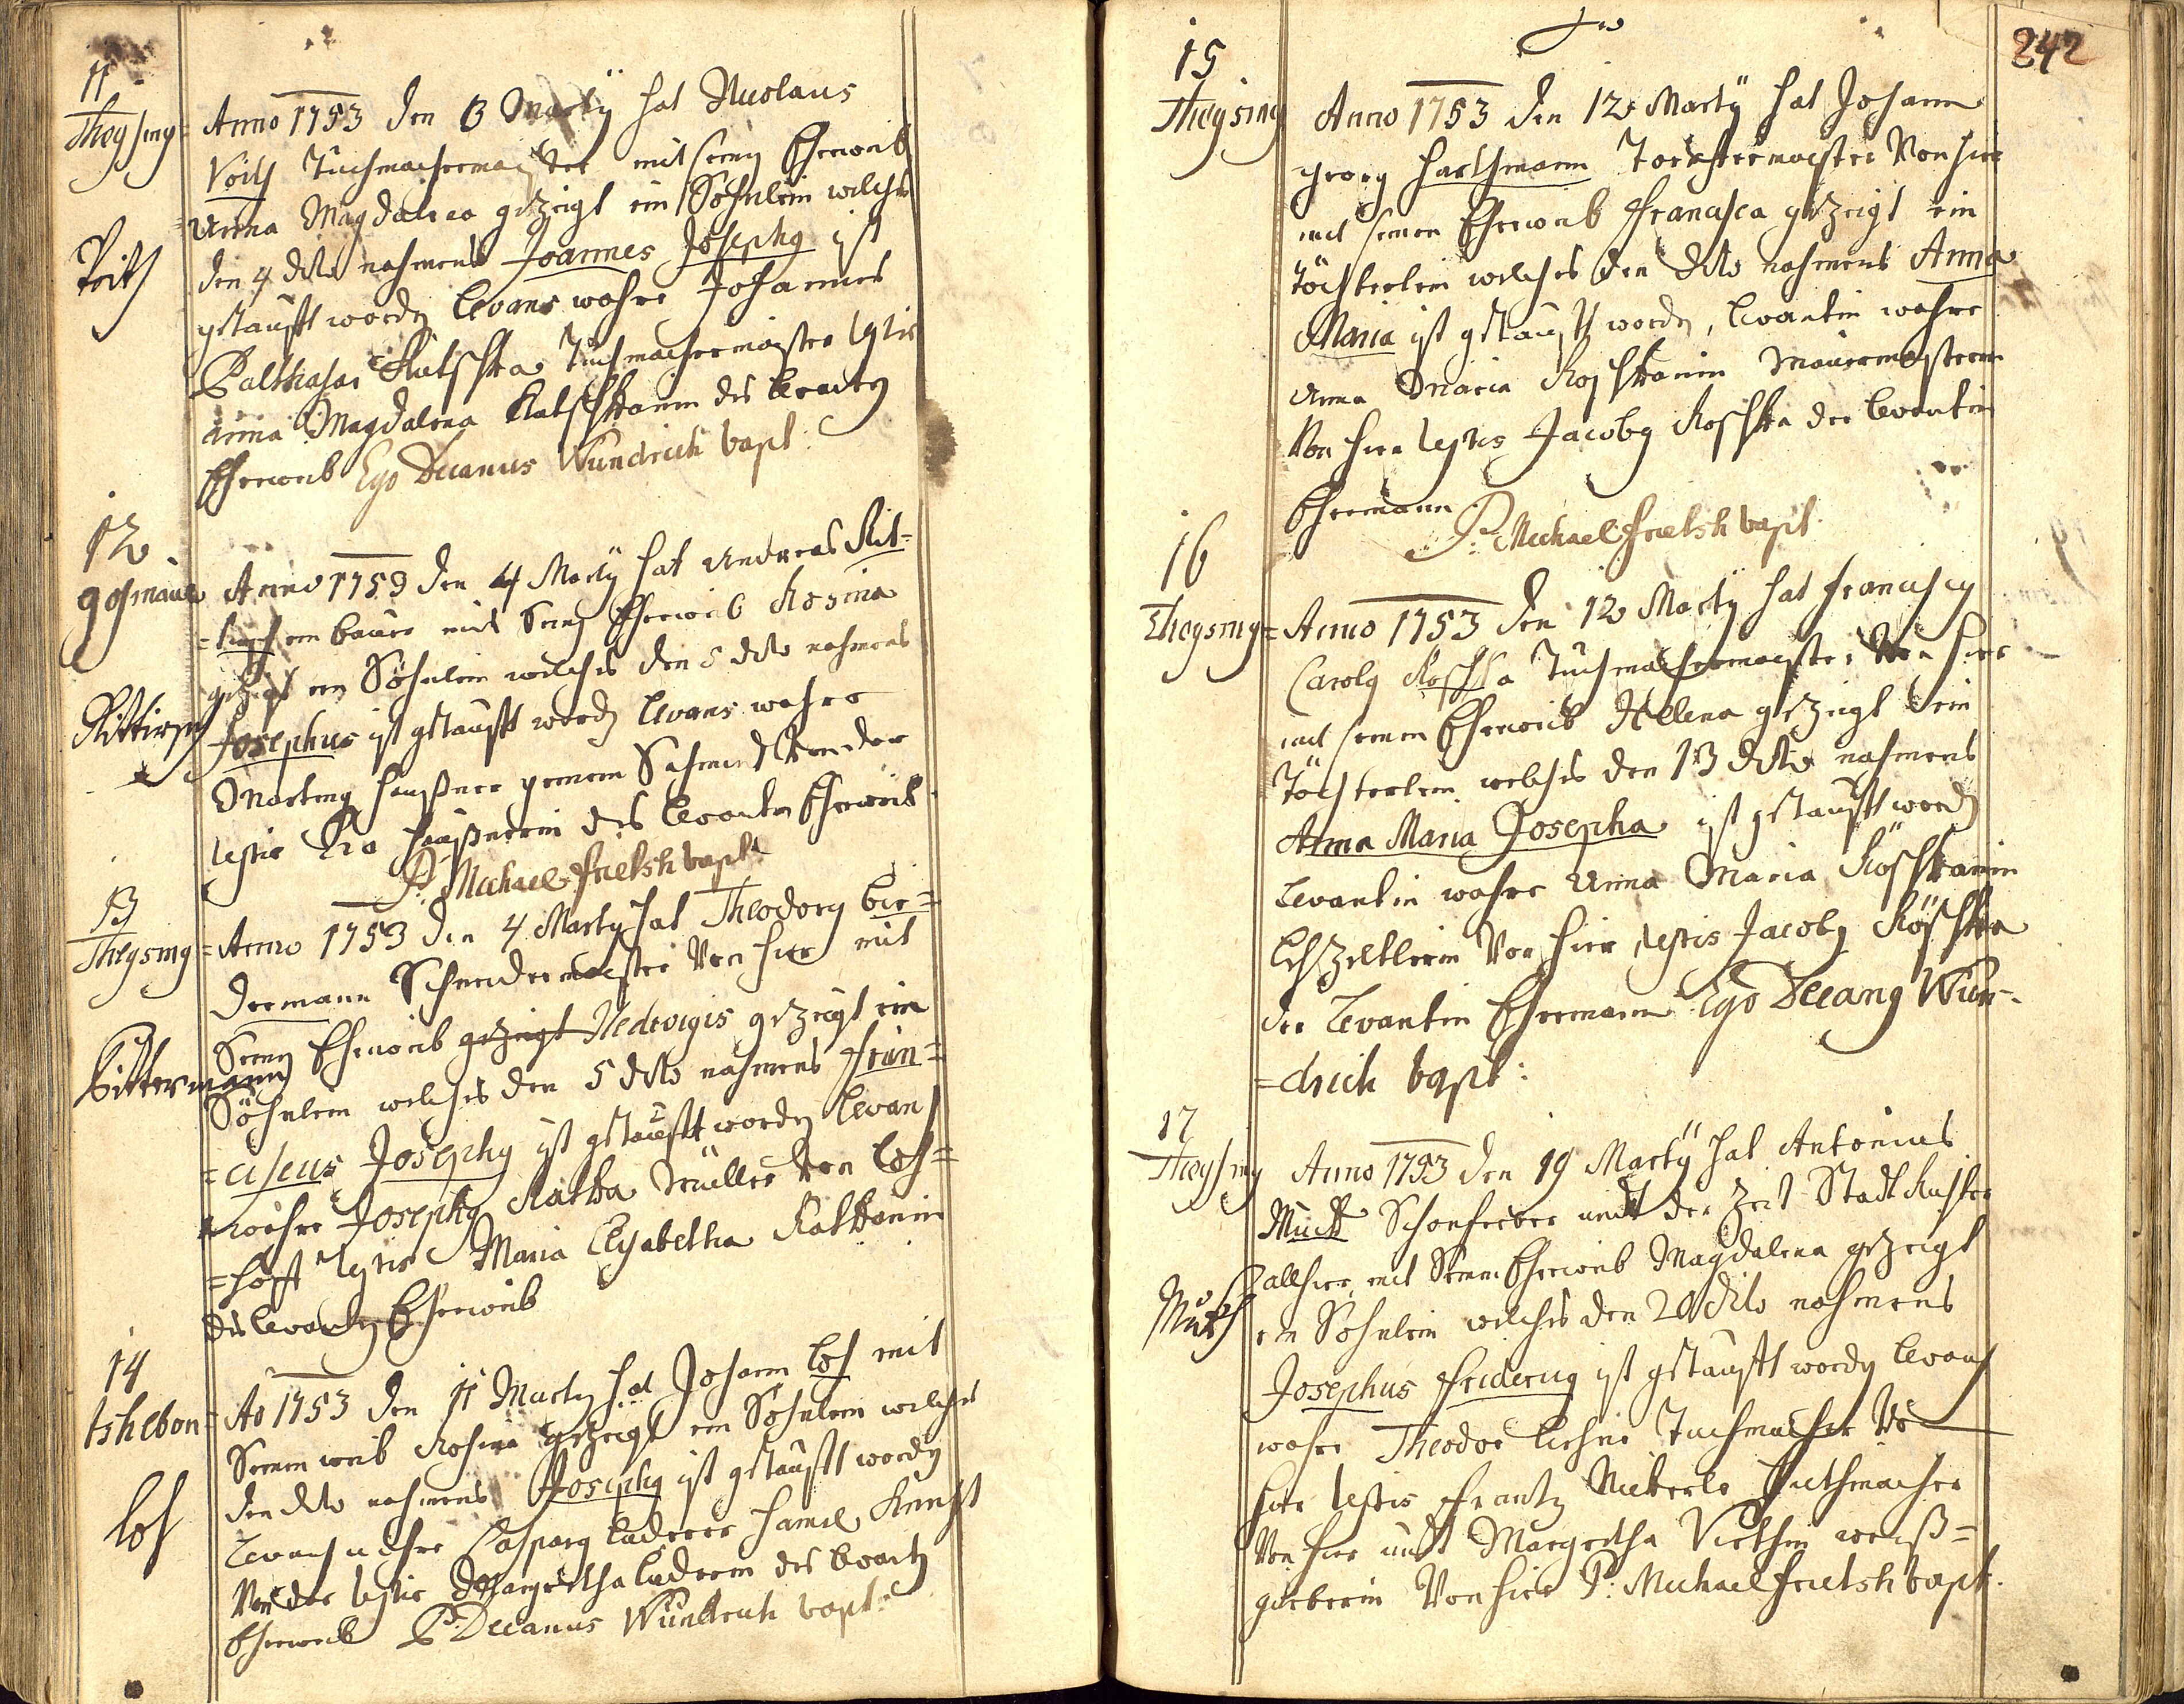 11
Theysing = Anno 1753 den 3 Martÿ hat Nicolaus
Voith Tuchmachermaister mit seinen Eheweib
Anna Magdalena gezeigt ein Söhnlein welches
Voith
den 4 dito nahmens Joannes Josephg ist
getaufft worden Levans wahre Johannes
Balthasar Kutschka Tuchmachermaister testis
Anna Magdalena des Levanten
Eheweib Ego Decanus Wundrich bapt:
12
Anno 1753 den 4 Martÿ hat Andreas Rit=
ein baüer mit Seinen Eheweib Rosina
gezeigt ein Söhnlein welches den 5 dito nahmens
Josephus ist getaufft worden Levans wahre
Marting von der
testis des Levanten Eheweib
P: Michael Frietsh bapt:
13
Theysing = Anno 1753 den 4 Marty hat Theodorg bie=
dermann Schneidermaister Von hier mit
Seinen Eheweib gezeigt Hedwigis gezeugt ein
Bittermann
Söhnlein welches den 5 dito nahmens Fran=
=ciscus Josephg ist getaufft worden Levans
wahre Josephg Katka Müller Von
=hoff testis Maria Elisabetha Katkanin
des Levanten Eheweib
14
Ao 1753 den 11 Marty hat Johann Loh mit
Seinem weib Rosina gezeigt ein Söhnlein welches
den dito nahmens Josephg ist getaufft worden
Loh
Levans wahre Casparg Laderer
Von der testis Margretha Laderin des Levanten
Eheweib P: Decanus Wundrich bapt:
242
15
Theysing Anno 1753 den 12 Martÿ hat Johann
Georg Harthmann Von hier
mit seinen Eheweib Francisca gezeigt ein
Töchterlein welches den dito nahmens Anna
Maria ist getaufft worden, Levantin wahre
Anna Maria Roschkanin Mauermaisterin
Von hier testis Jacobg Roschka der Levantin
Ehemann
P: Michael Frietsh bapt:
16
Theysing = Anno 1753 den 12 Martÿ hat Franciscg
Carolg Roschka Tuchmachermaister Von hier
mit seinem Eheweib Hellena gezeigt ein
Töchterlein welches den 13 dito nahmens
Anna Maria Josepha ist getaufft worden
Levantin wahre Anna Maria Röschkanin
Lehzeltlerin Von hier, testis Jacobg Röschka
der Levantin Ehemann Ego Decang Wun=
=drich bapt:
17
Theysing Anno 1753 den 19 Martÿ hat Antonius
Schönferber undt der Zeit Stadt Richter
allhier, mit Seinen Eheweib Magdalena gezeigt
ein Söhnlein welches den 20 dito nahmens
Josephus Fridericg ist getaufft worden Levans
wahre Theodor Tuchmacher Von
hier testis Frantz Huthmacher
Von hier undt Margretha weiß=
gerberin Von hier P: Michael Frietsh bapt.